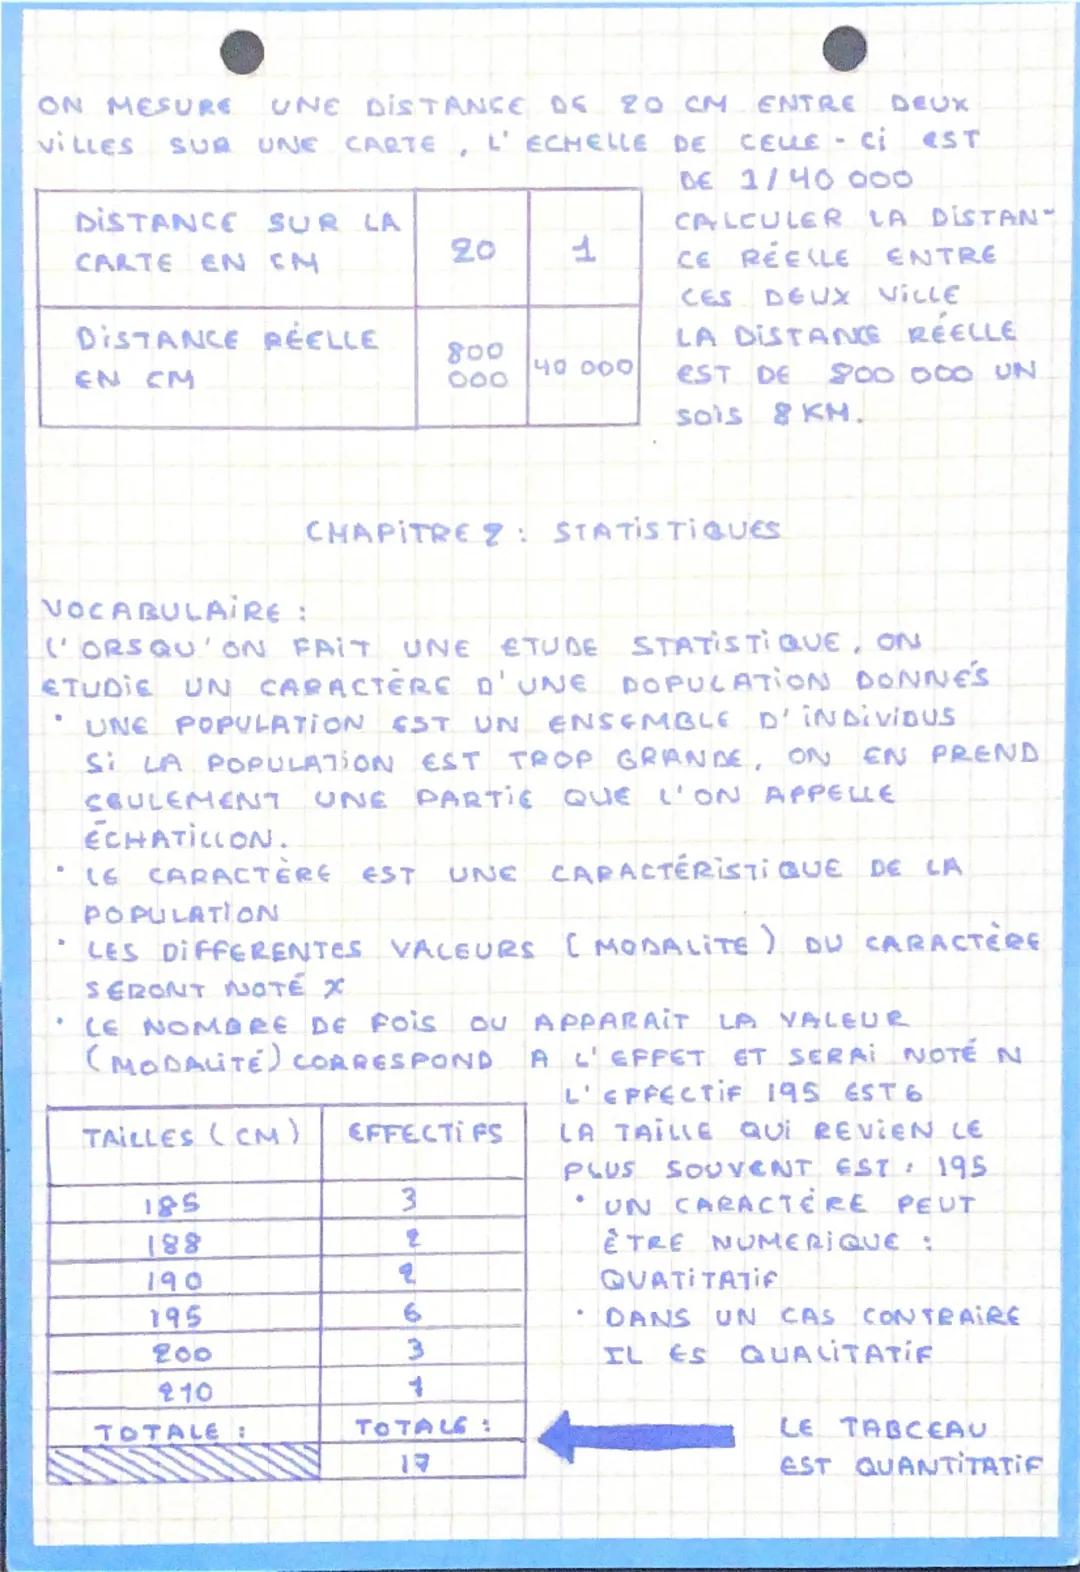 ON MESURE UNE DISTANCE DE 20 CM ENTRE DEUX
VILLES SUR UNE CARTE, L'ECHELLE DE CELLE-Ci EST
DE 1/40 000
CALCULER LA DISTAN-
CE RÉELLE ENTRE
CES DEUX VILLE
LA DISTANCE RÉELLE
EST DE 800 000 UN
SOIS 8 KM.
DISTANCE SUR LA
CARTE EN CM
20
1
DISTANCE RÉELLE
EN CM
800
000
40 000
CHAPITRE 2: STATISTIQUES
VOCABULAIRE :
L'ORSQU'ON FAIT UNE ETUDE STATISTIQUE, ON
ETUDIE UN CARACTÈRE D'UNE POPULATION DONNÉS
• UNE POPULATION EST UN ENSEMBLE D'INDIVIDUS
SI LA POPULATION EST TROP GRANDE, ON EN PREND
SEULEMENT UNE PARTIE QUE L'ON APPELLE
ÉCHATILLON.
• LE CARACTÈRE EST UNE CARACTÉRISTIQUE DE LA
POPULATION
• LES DIFFERENTES VALEURS (MODALITE) DU CARACTÈRE
SERONT NOTÉ x
• LE NOMBRE DE FOIS OU APPARAIT LA VALEUR
(MODALITÉ) CORRESPOND A L'EFFET ET SERAI NOTÉ N
L'EFFECTIF 195 EST 6
LA TAILLE QUI REVIEN LE
PLUS SOUVENT EST : 195
• UN CARACTÈRE PEUT
ÊTRE NUMERIQUE :
QUATITATIF
• DANS UN CAS CONTRAIRE
IL ES QUALITATIF
TAILLES (CM) EFFECTIFS
185 3
188 2
190 2
195 6
200 3
210 1
TOTALE : TOTALE :
17
LE TABLEAU
EST QUANTITATIF